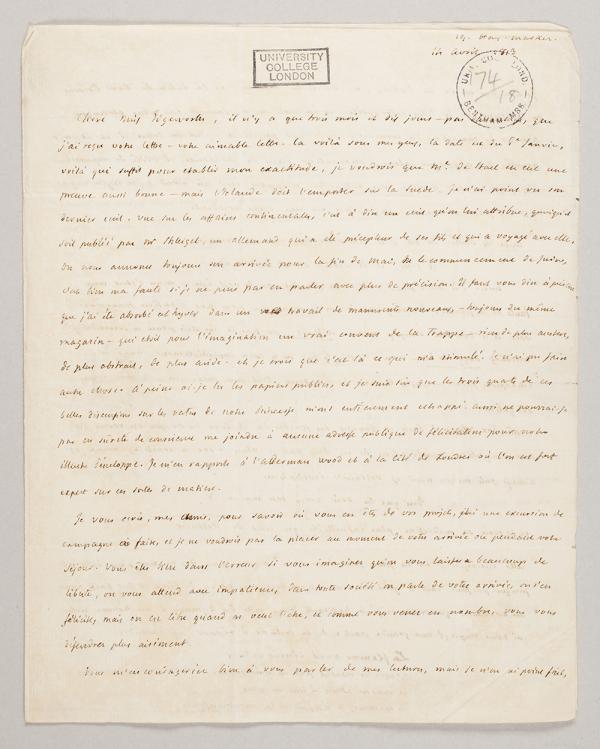 19. Hay-market.
14 avril 1813
UNIVERSITY
COLLEGE
LONDON
UNIV. COLL. LOND.
74
18
BENTHAM MSS.
Chère Miss Edgeworth, il n'y a que trois mois et dix jours – pas que
j'ai reçu votre lettre – votre aimable lettre – la voilà sous mes yeux, la date est du Janvier,
voilà qui suffit pour établir mon exactitude, je voudrois que Me. de Stael en eut une
preuve aussi bonne – mais l'Irlande doit l'emporter sur la Suede. je n'ai point vu son
dernier écrit. vue sur les affaires continentales, c'est à dire un écrit qu'on lui attribue, quoiqu'il
soit publié par Mr Shlegel, un allemand qui a été précepteur de ses fils et qui a voyagé avec elle.
On nous annonce toujours son arrivée pour la fin de mai, le commencement de Juin,
bien ma faute si je ne puis pas en parler avec plus de précision. Il faut vous dire à présent
que j'ai été absorbé cet hyver dans un travail de manuscrits nouveaux – toujours du même
magazin – qui etoit pour l'imagination un vrai couvent de la Trappe – rien de plus austere,
de plus abstrait, de plus aride – et je crois que c'est là ce qui m'a stimulé. je n'ai pu faire
autre chose. à peine ai-je lu les papiers publics, et je suis sûr que les trois quarts de ces
belles discussions sur les de notre Princesse m'ont entièrement echappé aussi ne pourrai-je
pas en sûreté de conscience me joindre à aucune adresse publique de félicitation pour notre
illustre . Je m'en rapporte à l'alderman Wood et à la cité de Londres où l'on est fort
expert sur ces sortes de matières.
Je vous écris, mes , pour savoir où vous en êtes de vos projets, j'ai une excursion de
campagne à faire, et je ne voudrois pas la placer au moment de votre arrivée ou pendant votre
séjour. Vous êtes dans l'erreur si vous imaginez qu'on vous laissera beaucoup de
liberté, on vous attend avec impatience, dans toute société on parle de votre arrivée, on s'en
félicite, mais on est libre quand on veut l'être, et comme vous venez en nombre, vous vous
défendrez plus aisément.
Vous m'encouragerez bien à vous parler de mes lectures, mais je n'en ai point fait,